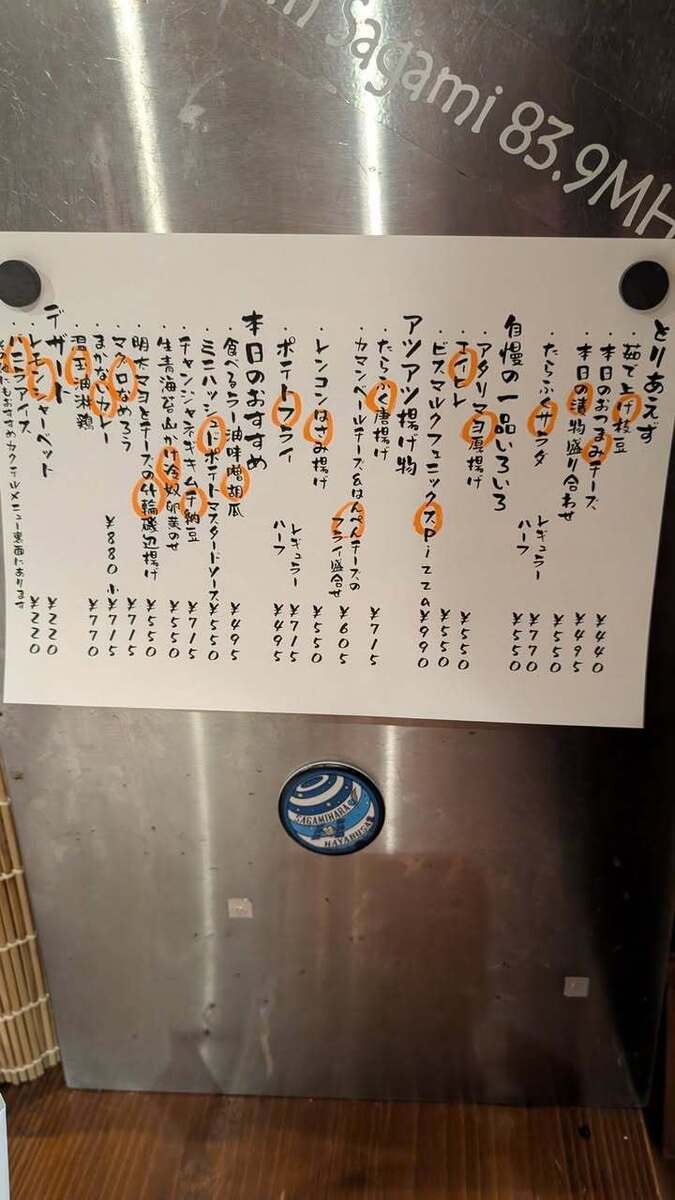 Sagami 83.9MH
とりあえず
・茹で上げ枝豆 ¥440
・本日のおつまみチーズ ¥495
・本日の漬物盛り合わせ ¥550
・たらふくサラダ レギュラー ¥770
ハーフ ¥550
自慢の一品いろいろ
・アタリマヨ厚揚げ ¥550
・エイヒレ ¥550
・ビスマルクフェニックスPizza ¥990
アツアツ揚げ物
・たらふく唐揚げ ¥715
・カマンベールチーズ&はんぺんチーズの
フライ盛合せ ¥605
・レンコンはさみ揚げ ¥550
・ポテトフライ レギュラー ¥715
ハーフ ¥495
本日のおすすめ
・食べるラー油味噌胡瓜 ¥495
・ミニハッシュドポテトマスタードソース ¥550
・チャンジャネギキムチ納豆 ¥715
・生青海苔山かけ冷奴卵黄のせ ¥550
・明太マヨとチーズの竹輪磯辺揚げ ¥550
・マグロなめろう ¥715
・まかないカレー ¥880 小 ¥715
・温玉油淋鶏 ¥770
デザート
・レモンシャーベット ¥220
・バニラアイス ¥220
その他にもおすすめカクテルメニュー裏面にあります
SAGAMIHARA
HAYABUSA